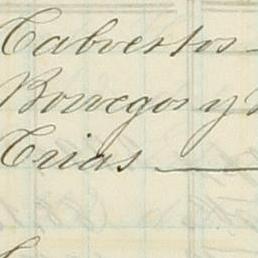 Cabrestos
Borregos y
Crias